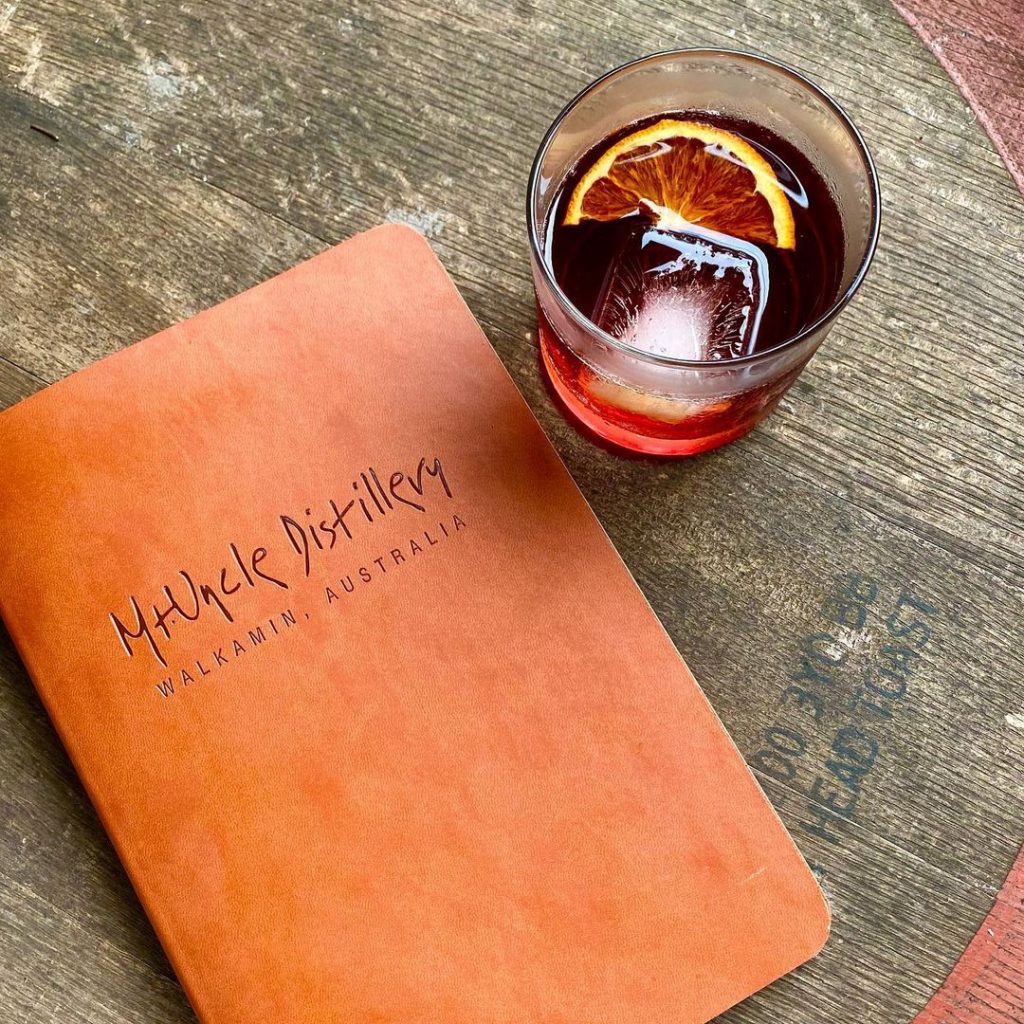 Mt.Uncle Distillery
WALKAMIN, AUSTRALIA
DO
HEAD TOAST